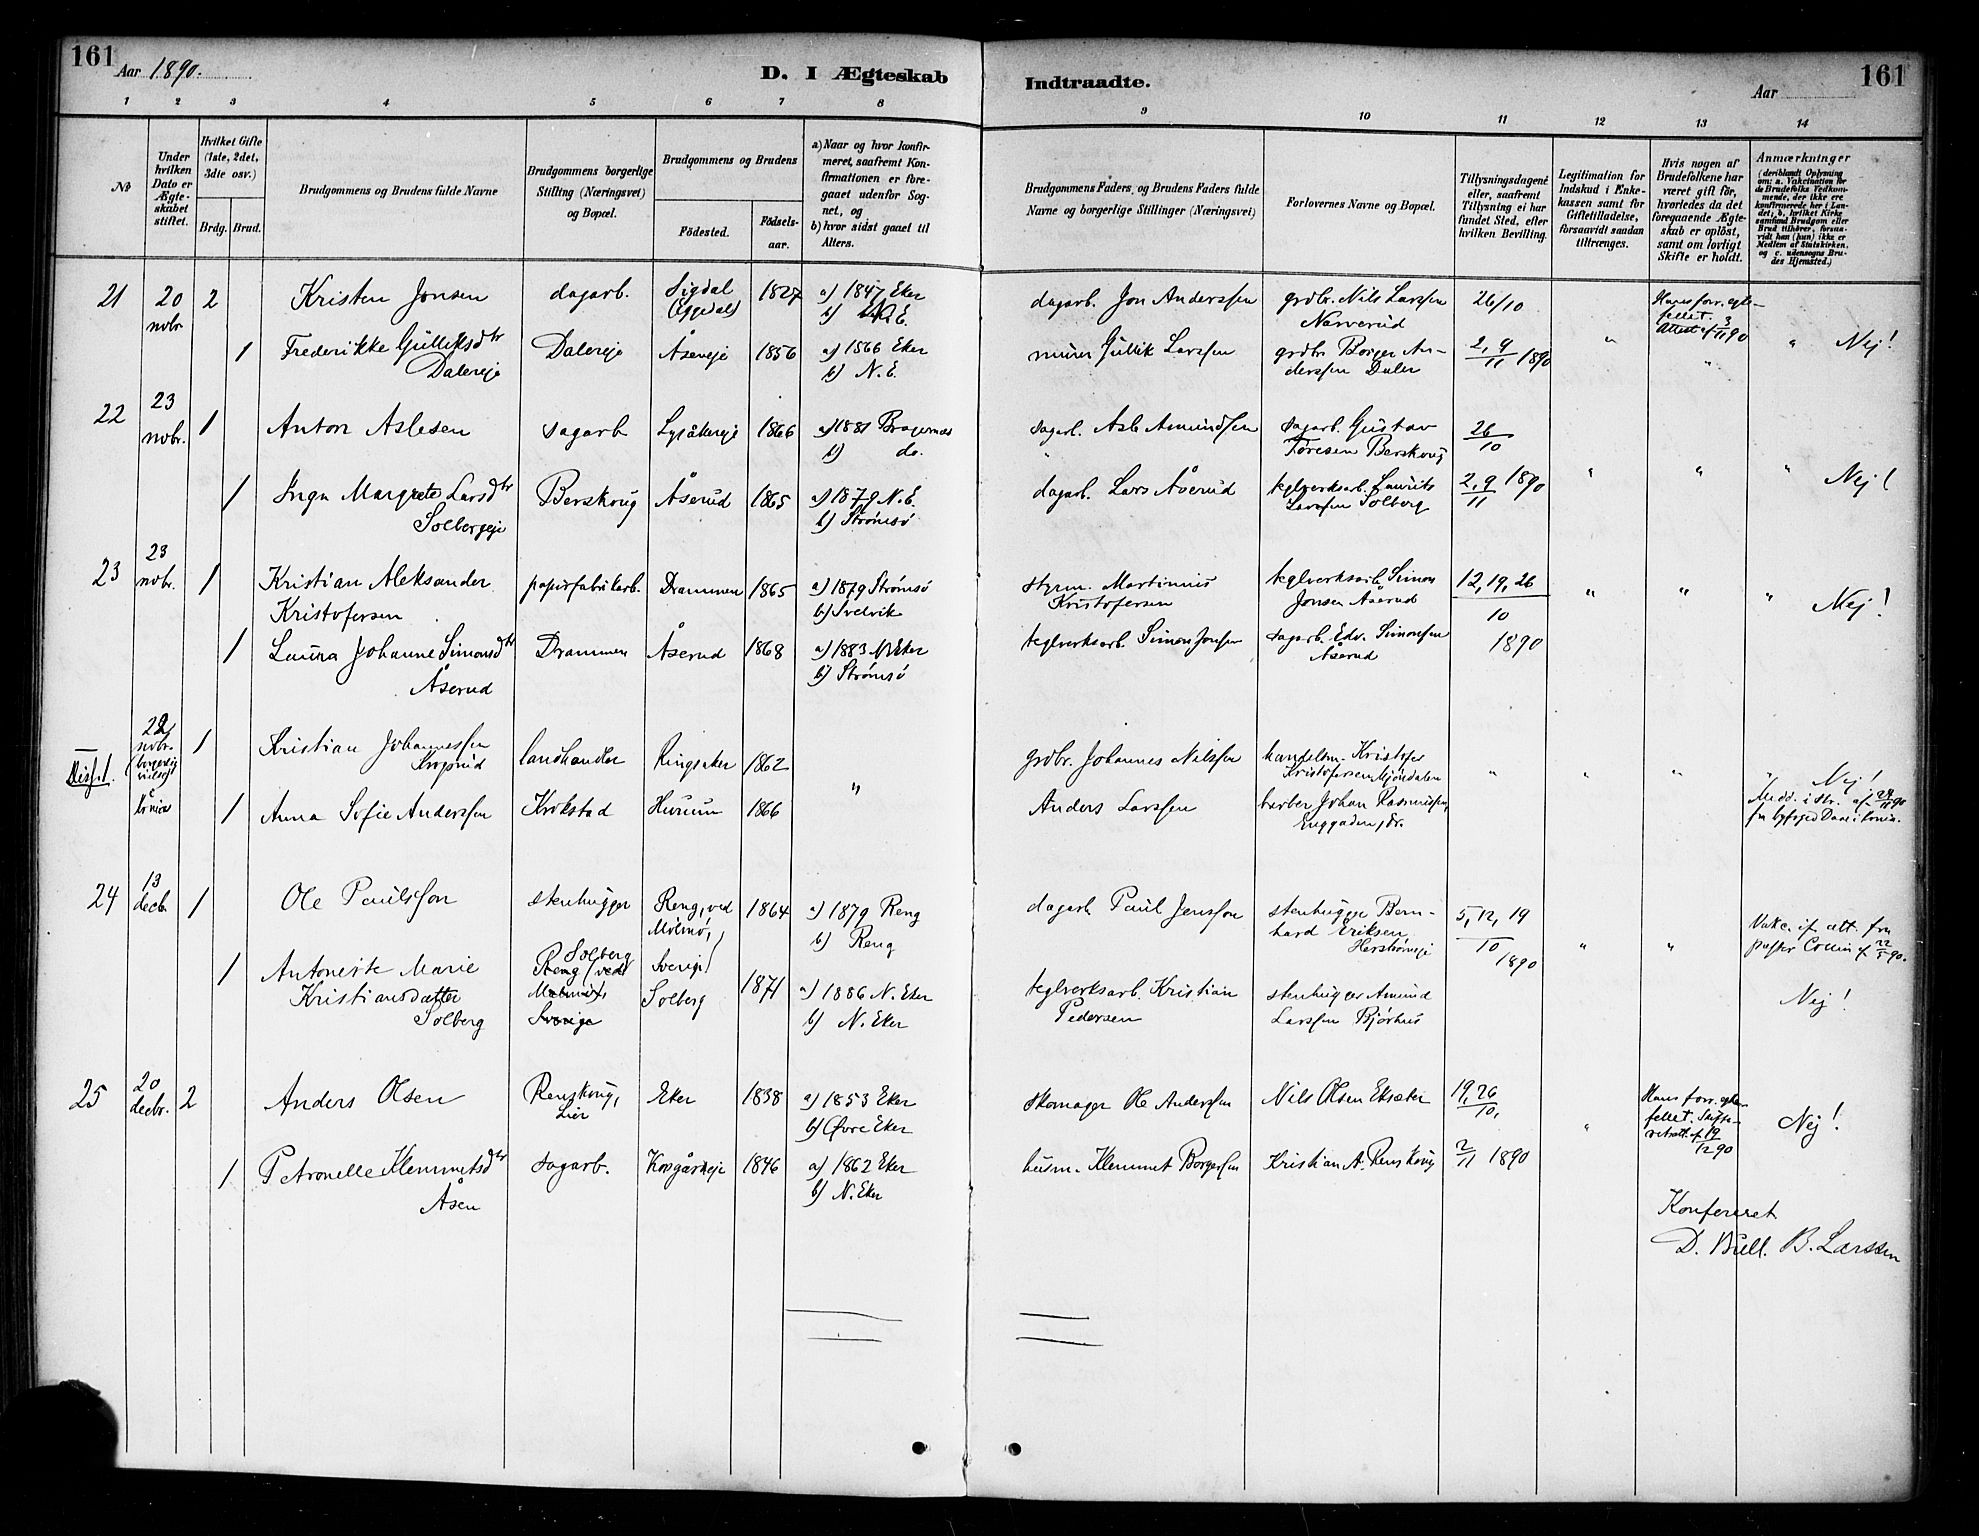 161
Aar 1890.
D. I Ægteskab
Indtraadte.
Aar
161
1 2 3 4 5 6 7 8 9 10 11 12 13 14
No
Under hvilken Dato er Ægteskabet stiftet.
Hvilket Gifte (1ste, 2det, 3die osv.)
Brdg. Brud.
Brudgommens og Brudens fulde Navne
Brudgommens borgerlige Stilling (Næringsvei) og Bopæl.
Brudgommens og Brudens
Födested. Födselsaar.
a) Naar og hvor konfirmeret, saafremt Konfirmationen er foregaaet udenfor Sognet, og
b) hvor sidst gaaet til Alters.
Brudgommens Faders og Brudens Faders fulde Navne og borgerlige Stillinger (Næringsvei)
Forlovernes Navne og Bopæl.
Tillysningsdagene eller, saafremt Tillysning ei har fundet Sted, efter hvilken Bevilling.
Legitimation for Indskud i Enkekassen samt for Giftetilladelse, forsaavidt saadan tiltrænges.
Hvis nogen af Brudefolkene har været gift før, hvorledes da det foregaaende Ægteskab er oplöst, samt om lovligt Skifte er holdt.
Anmærkninger
(deriblandt Oplysning om: a. Vakcination for de Brudefolks Vedkommende, der ikke ere konfirmerede her i Landet; b. hvilket Kirkesamfund Brudgom eller Brud tilhører, forsaavidt han (hun) ikke er Medlem af Statskirken, og c. udensogns Brudes Hjemsted.)
21 20 novbr. 2 Kristen Jonsen dagarb. Sigdal (Eggedal) 1827 a) 1847 Eker b) N.E. dagarb. Jon Anderssen grdbr. Nils Larssen Narverud 26/10 Hans forr. egtefellet. Attest af 3/11 90
1 Frederikke Gulliksdtr Dalereje Dalereje Åsereje 1856 a) 1866 Eker b) N.E. murer Gullik Larssen grdbr Borger Anderssen Daler 2, 9/11 1890 " " " Nej!
22 23 novbr. 1 Anton Aslesen sagarb Lysåkereje 1866 a) 1881 Bragernæs b) do. sagarb. Asle Amundssen sagarb. Gustav Toresen Berskoug 26/10
1 Inga Margrete Larsdtr Solbergeje Berskoug Åserud 1865 a) 1879 N.E. b) Strømsö dagarb. Lars Åserud teglverksarb. Laurits Larssen Solberg 2, 9/11 1890 " " " Nej!
23 23 novbr. 1 Kristian Aleksander Kristofersen papirfabrikarb. Drammen 1865 a) 1879 Strømsö b) Svelvik styrm. Martinius Kristofersen teglverksarb. Simon Jonsen Åserud 12, 19, 26/10 1890 " " " Nej!
1 Laura Johanne Simonsdtr Åserud Drammen Åserud 1868 a) 1883 N. Eker b) Strømsö teglverksarb. Simon Jonsen sagarb. Edv. Simonsen Åserud
Diss. 22 novbr. 1 Kristian Johannessen landhandler Ringsaker 1862 " grdbr. Johannes Nilssen handelsm. Kristofer Kristofersen Mjöndalen " " " " Nej!
1 Anna Sofie Anderssen Krokstad Hurum 1866 Anders Larssen barber Johan Rasmussen, Enggaden, Dr.
24 13 decb. 1 Ole Paulsson stenhugger Reng, ved Malmö, Sverige 1864 a) 1879 Reng b) Reng dagarb. Paul Jensson stenhugger Bernhard Eriksen 5, 12, 19/10 1890 " " Vakc. if. att. fra pastor Collin af 22/5 90.
1 Antonette Marie Kristiansdatter Solberg Solberg Reng (ved Malmö) Sverige Solberg 1871 a) 1886 N. Eker b) N. Eker teglverksarb. Kristian Pedersen stenhugger Amund Larssen Bjørhus Nej!
25 20 decbr. 2 Anders Olsen Renskoug, Lier Eker 1838 a) 1853 Eker b) Øvre Eker skomager Ole Anderssen Nils Olsen Eksæter 19, 26/10, Hans forr. egtefellet. Skifteretsatt. af 19/12 90 Nej!
1 Petronelle Klemmetsdtr Åsen sagarb. 1846 a) 1862 Eker b) N. Eker husm. Klemmet Borgersen Kristian A. Renskoug 2/11 1890 "
Konfereret
D. Bull. B. Larssen